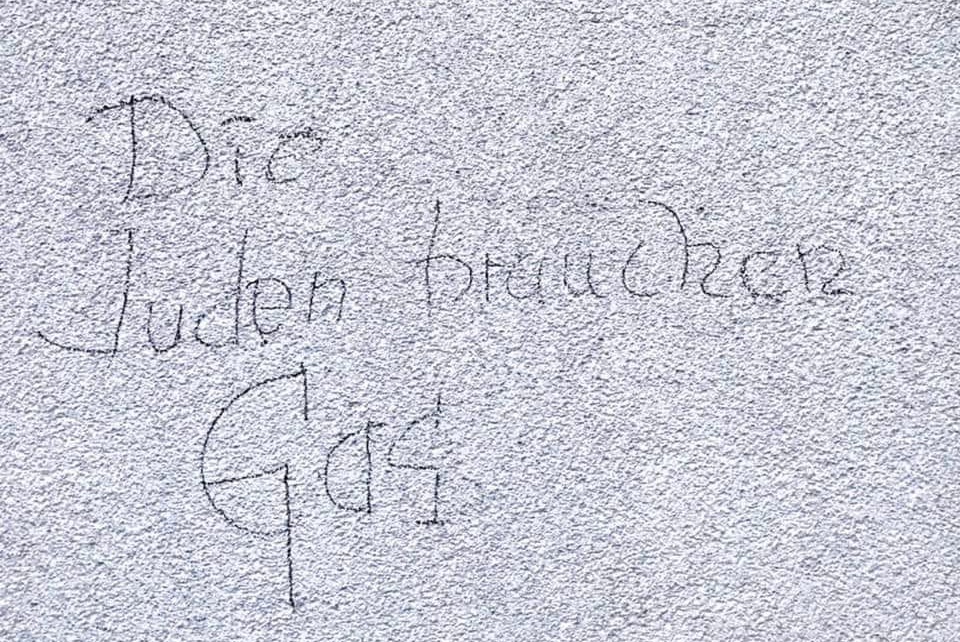 Die
Juden brauchen
Gas